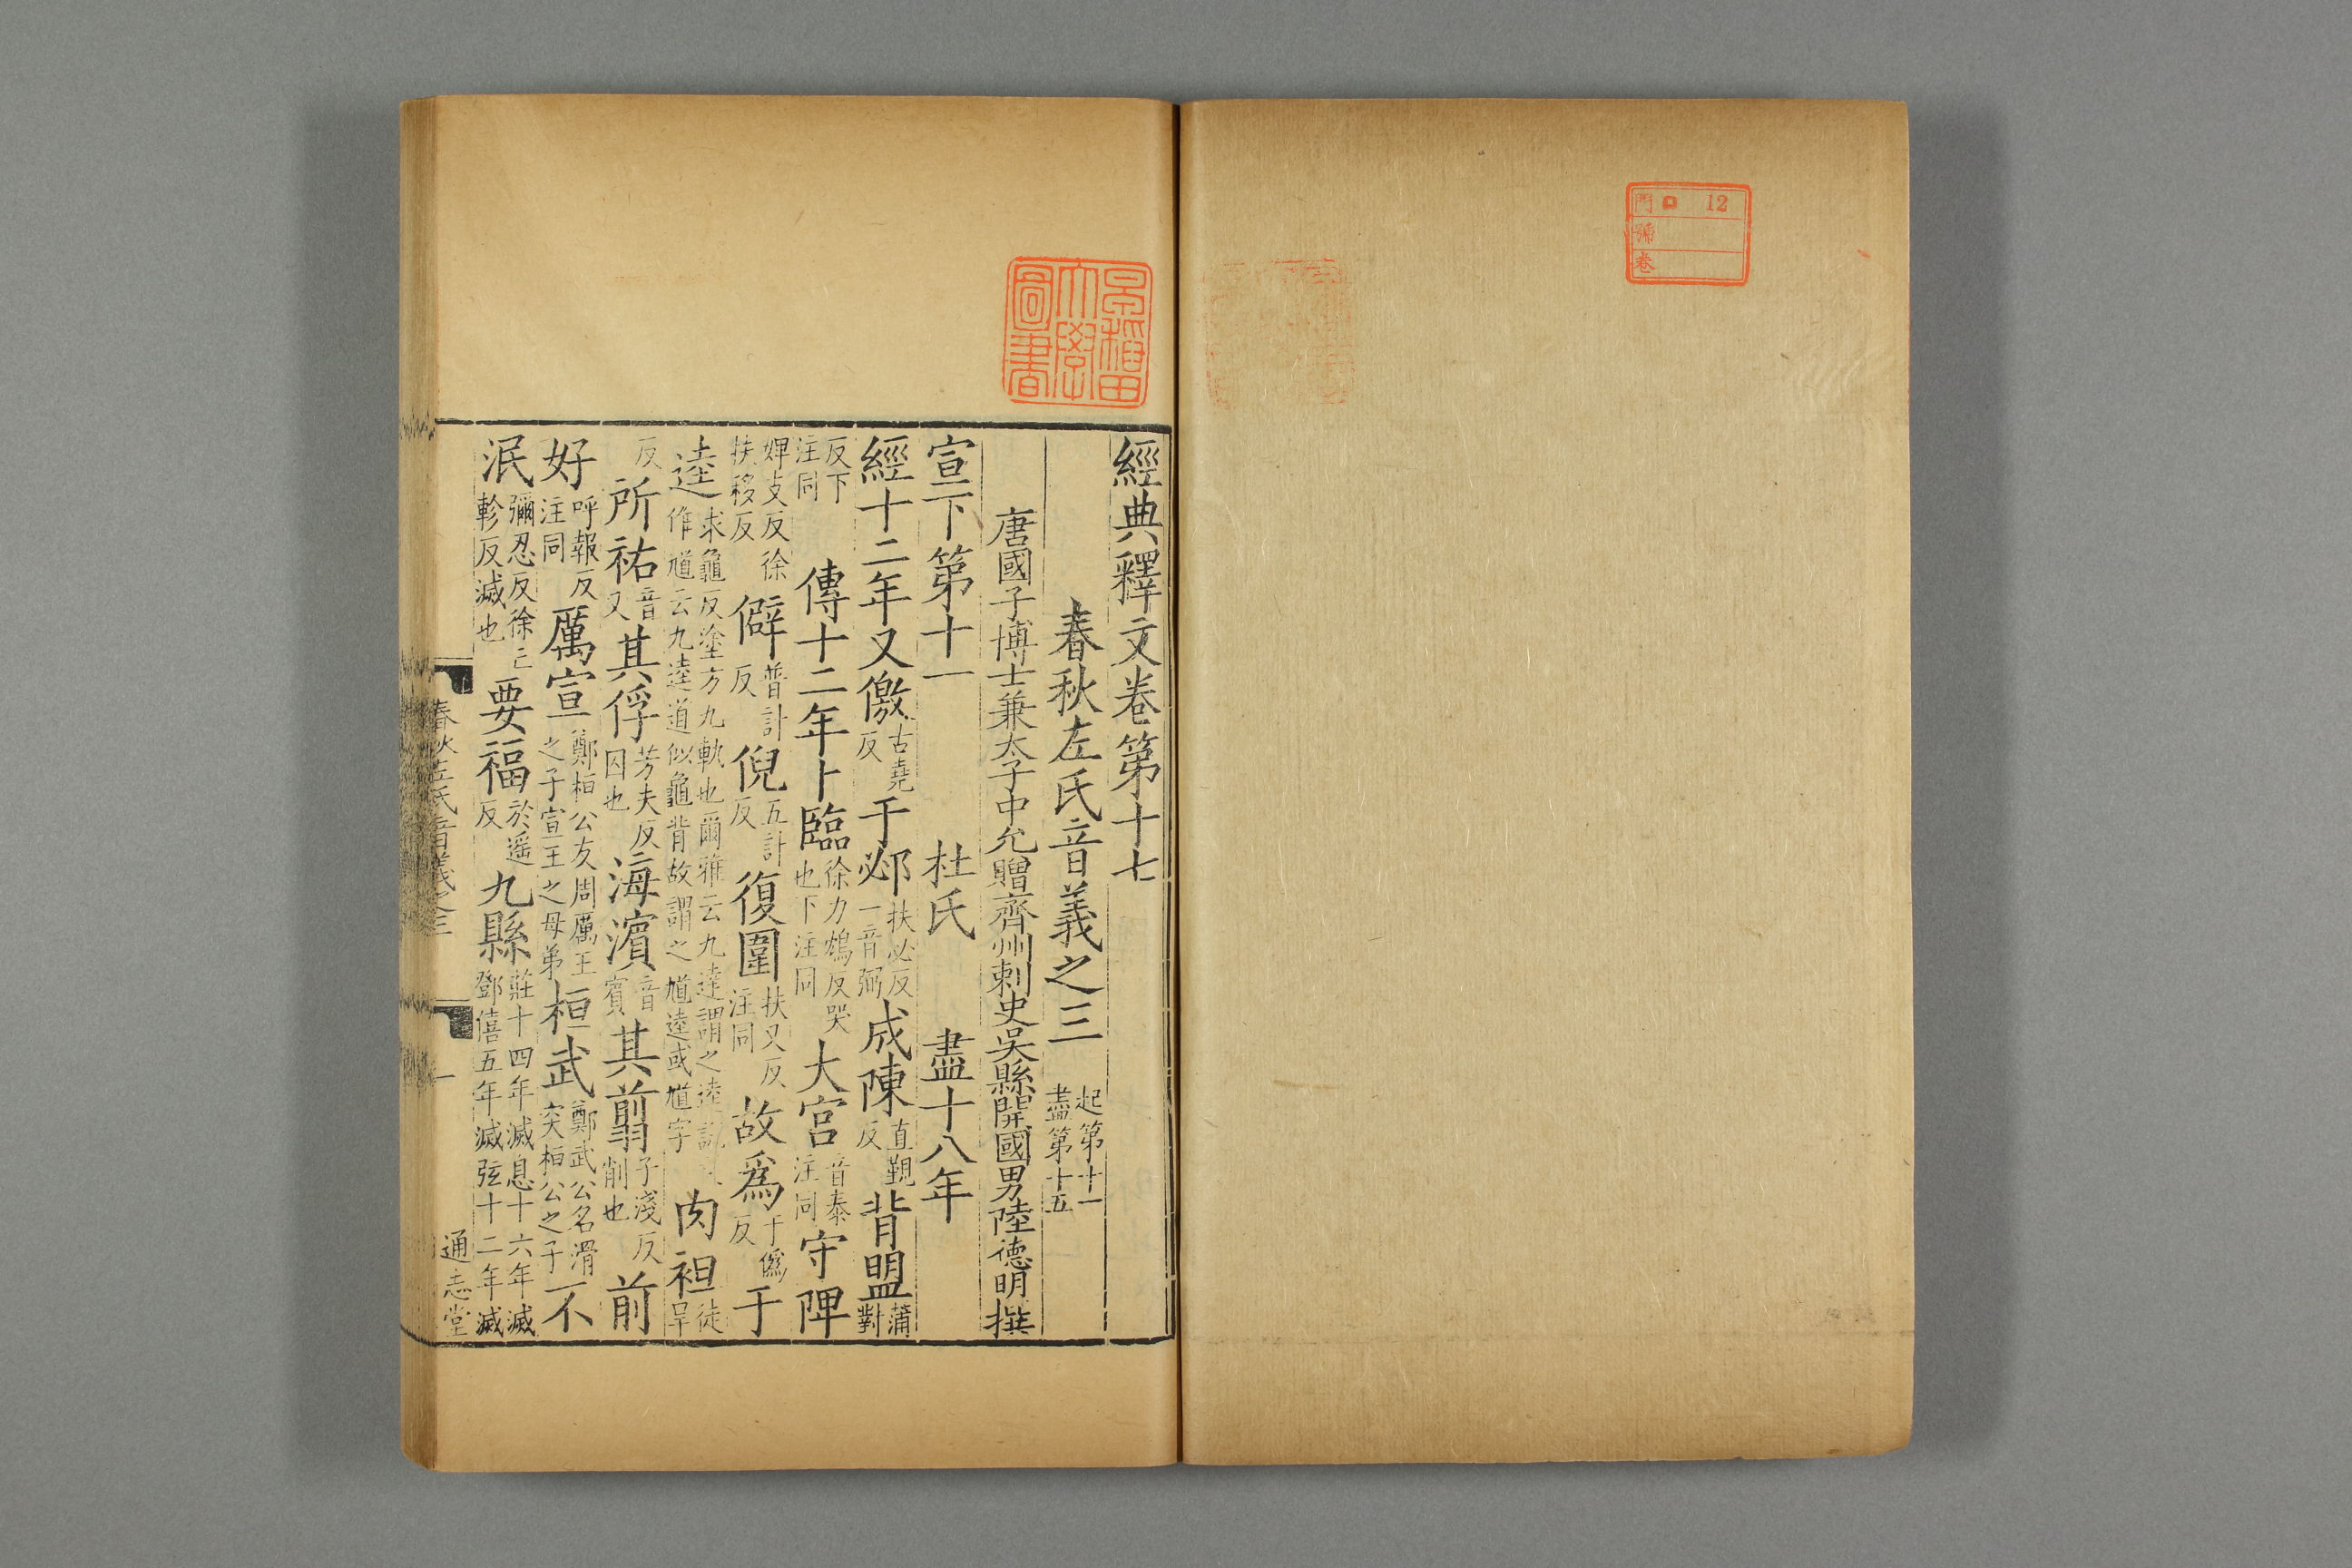 門 口 12
號
卷
早稲田大學圖書
經典釋文卷第十七
春秋左氏音義之三 起第十一盡第十五
唐國子博士兼太子中允贈齊州刺史吳縣開國男陸德明撰
宣下第十一 杜氏 盡十八年
經十二年又儌古堯反于邲扶必反一音弼成陳直覲反背盟蒲對
反下注同 傳十二年卜臨徐力鴆反哭也下注同大宮音泰注同守陴
婢支反徐扶移反僻普計反倪五計反復圍扶又反注同故爲于僞反于
逵求龜反塗方九軌也爾雅云九達謂之逵說作馗云九逵道似龜背故謂之馗逵或馗字肉袒徒旱
反所祐音又其俘芳夫反囚也海濱音賓其翦子淺反削也前
好呼報反注同厲宣鄭桓公友周厲王之子宣王之母弟桓武鄭武公名滑突桓公之子不
泯彌忍反徐亡軫反滅也要福於遥反九縣莊十四年滅息十六年滅鄧僖五年滅弦十二年滅
春秋左氏音義之三 一 通志堂